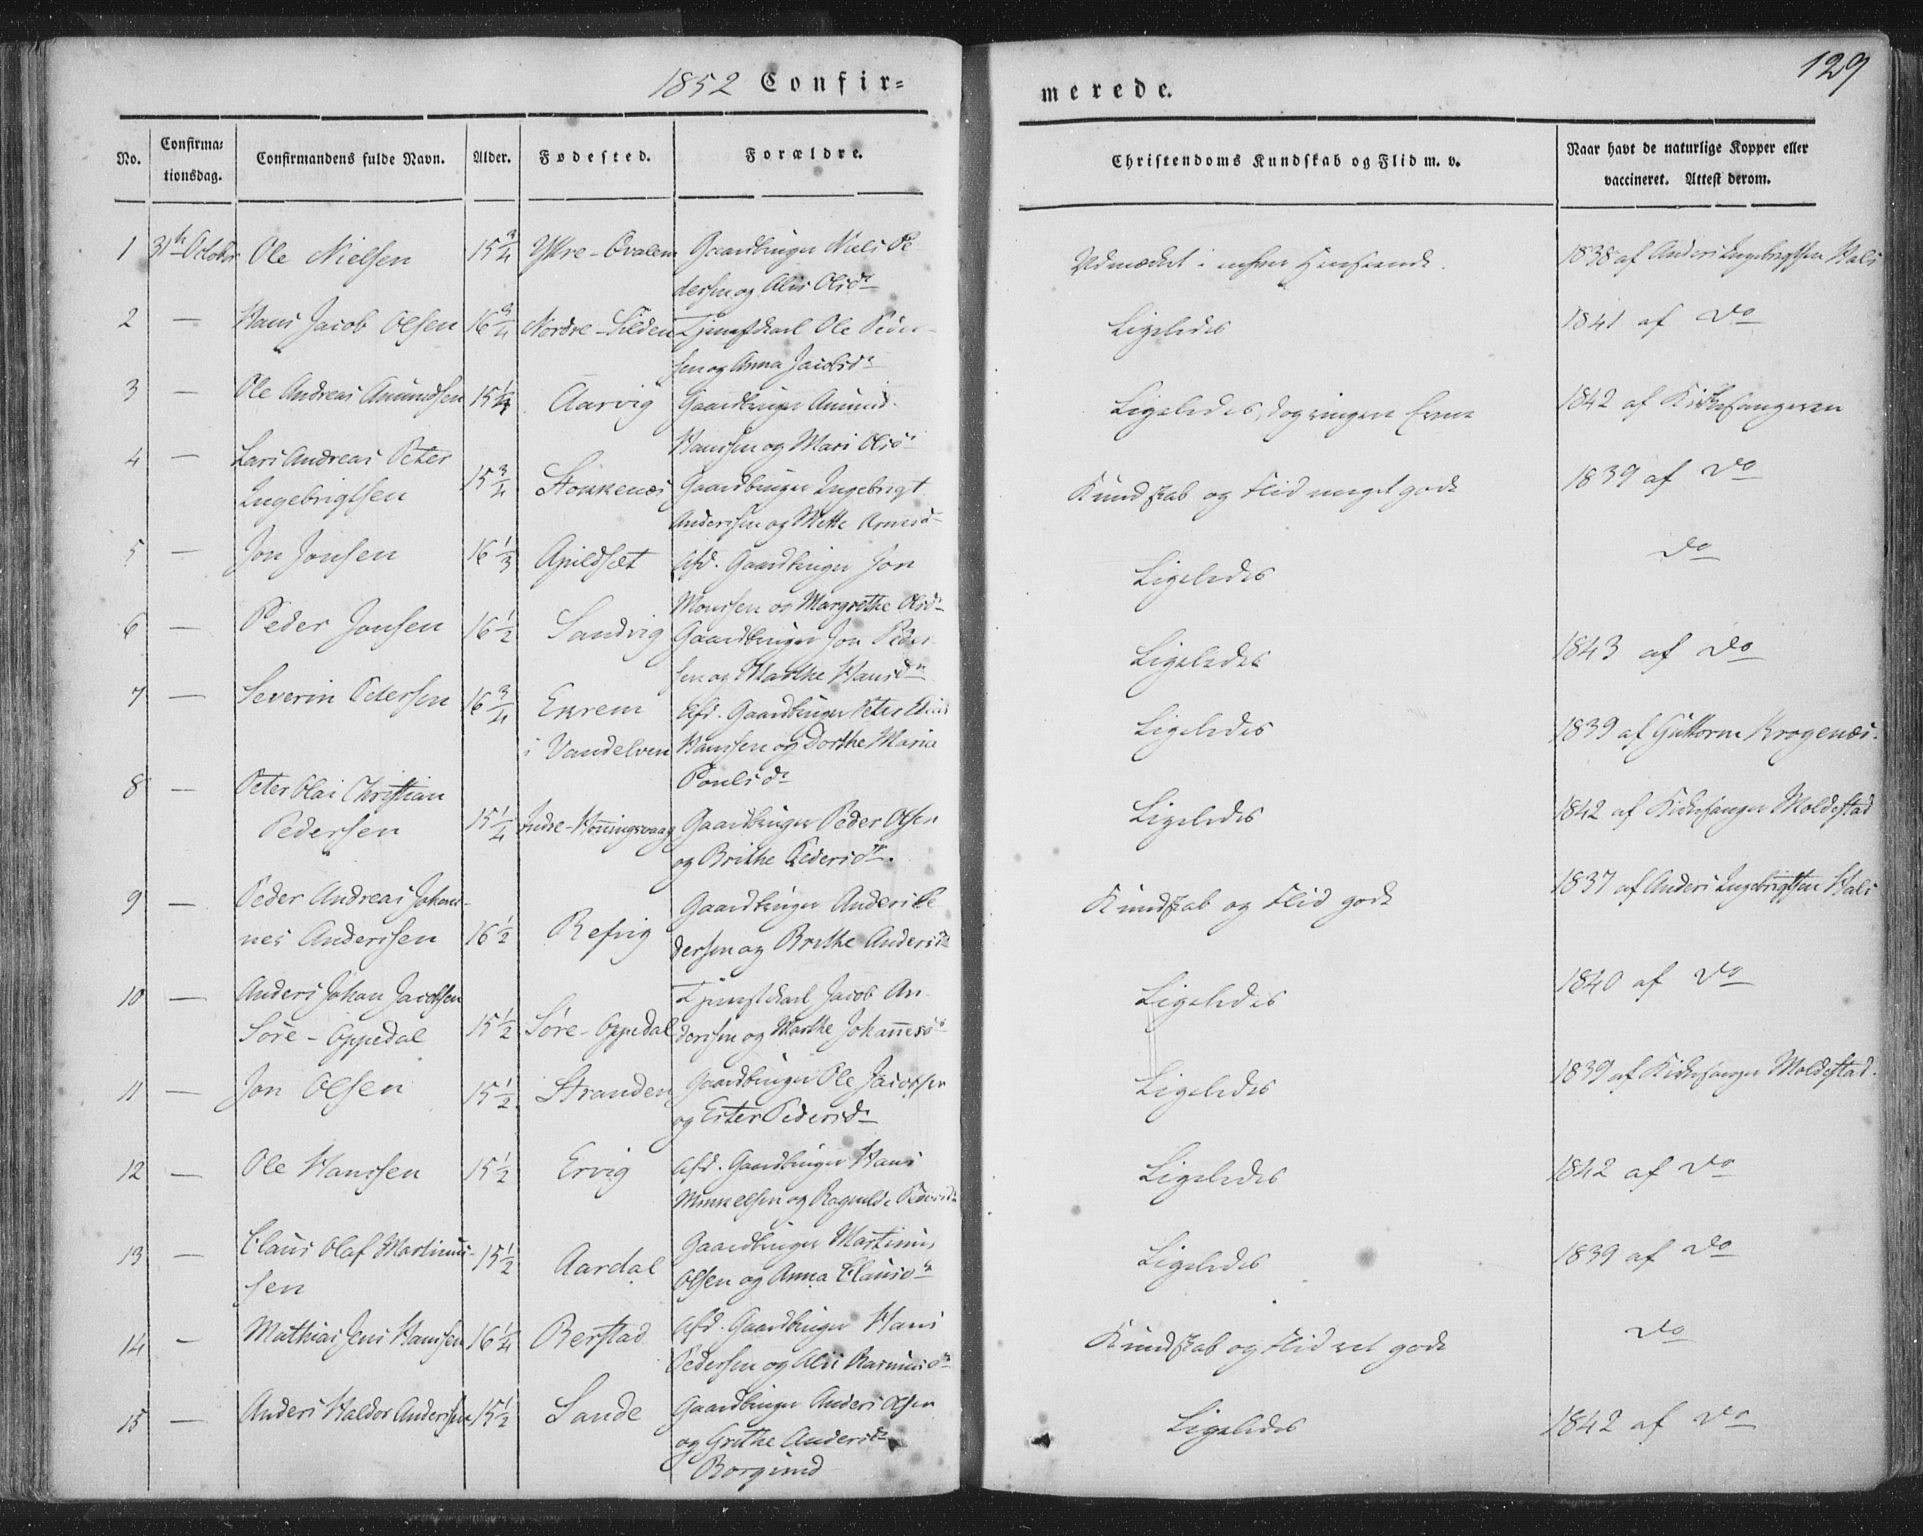 1852 Confir=
merede.
129
No.
Confirma=
tionsdag.
Confirmandens fulde Navn.
Alder.
Fødested.
Forældre.
Christendoms Kundskab og Flid m. v.
Naar havt de naturlige Kopper eller
vaccineret. Attest derom.
1 31te October Ole Nielsen 15 3/4 Ytre-Qvalem Gaardbruger Niels Pe
dersen og Alis Olsdr
Udmærket i enhver Henseende. 1838 af Anders Ingebrigtsen Hals
2 — Hans Jacob Olsen 16 3/4 Nordre-Silden Tjenestekarl Ole Peder
sen og Anna Jacobsdr
Ligeledes 1841 af Do
3 — Ole Andreas Amundsen 15 1/4 Aarvig Gaardbruger Amund
Hanssen og Mari Olsdr
Ligeledes, dog ringere Evne 1842 af Kirkesangeren
4 — Lars Andreas Peter
Ingebrigtsen 15 3/4 Stokkenæs Gaardbruger Ingebrigt
Anderssen og Mette Arnesd
Kundskab og Flid meget gode 1839 af Do
5 — Jon Jonsen 16 1/3 Apildsæt Afd. Gaardbruger Jon
Monssen og Margrethe Olsdr
Ligeledes Do
6 — Peder Jonsen 16 1/2 Sandvig Gaardbruger Jon Peder
sen og Marthe Hansdr
Ligeledes 1843 af Do
7 — Severin Petersen 16 3/4 Ekrem Afd. Gaardbruger Peter
i Vandelven Hanssen og Dorthe Maria
Poulsdr
Ligeledes 1839 af Guttorm Krogenæs.
8 — Peter Olai Christian
Pedersen 15 1/4 Indre-Honningsvaag Gaardbruger Peder Olsen
og Brithe Pedersdr.
Ligeledes 1842 af Kirkesanger Moldestad
9 — Peder Andreas Johan
nes Anderssen 16 1/2 Refvig Gaardbruger Anders Pe
dersen og Brithe Andersdr
Kundskab og Flid gode 1837 af Anders Ingebrigtsen Hals
10 — Anders Johan Jacobsen
Søre-Oppedal 15 1/2 Søre-Oppedal Tjenestekarl Jacob An
derssen og Marthe Johannesd
Ligeledes 1840 af Do
11 — Jon Olsen 15 1/2 Stranden Gaardbruger Ole Jacobsen
og Ester Pedersdr
Ligeledes 1839 af Kirkesanger Moldestad.
12 — Ole Hanssen 15 1/2 Ervig Afd. Gaardbruger Hans
Mikkelsen og Ragnilde Pedersdr
Ligeledes 1842 af Do
13 — Claus Olaf Martinus
sen 15 1/2 Aardal Gaardbruger Martinus
Olsen og Anna Clausdr
Ligeledes 1839 af Do
14 — Mathias Jens Hanssen 16 1/4 Berstad Afd. Gaardbruger Hans
Pedersen og Alis Rasmusdr
Kundskab og Flid ret gode Do
15 — Anders Haldor Anderssen 15 1/2 Sande Gaardbruger Anders Olsen
og Grethe Andersdr
Borgund
Ligeledes 1842 af Do